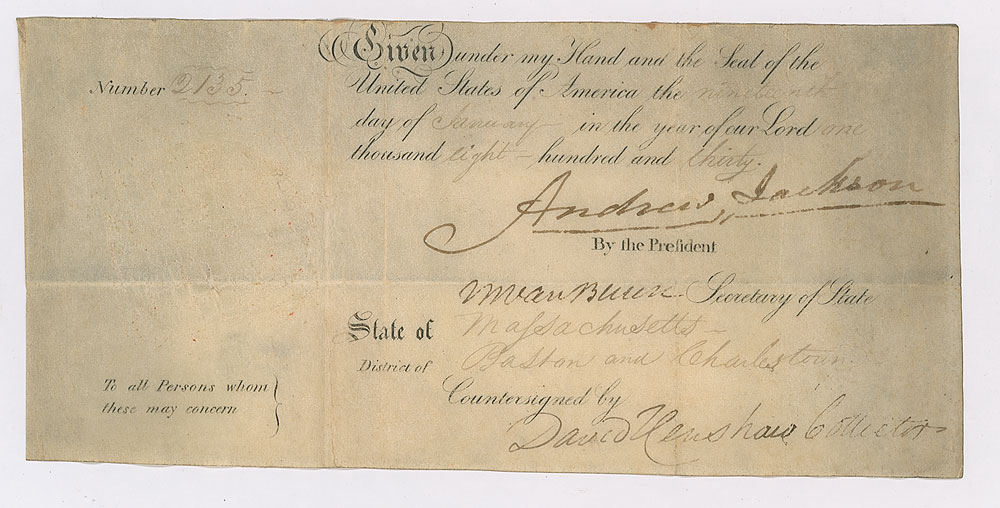 Given under my Hand and the Seal of the
Number 2135.
United States of America the nineteenth
day of January in the year of our Lord one
thousand eight - hundred and thirty.
Andrew Jackson
By the Preſident
M Van Buren Secretary of State
State of Maſsachusetts
District of Boston and Charlestown.
To all Persons whom
these may concern
Countersigned by
David Henshaw Collector